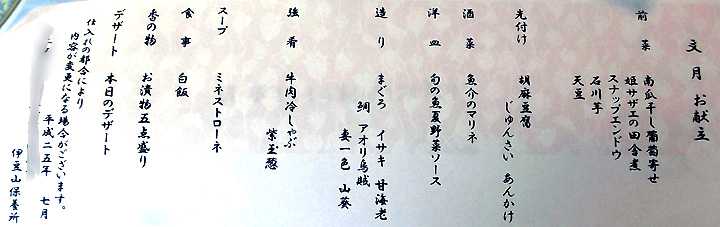 文月 お献立
前菜 南瓜干し葡萄寄せ
姫サザエの田舎煮
スナップエンドウ
石川芋
天豆
先付け 胡麻豆腐
じゅんさい あんかけ
酒菜 魚介のマリネ
洋皿 旬の魚夏野菜ソース
造り まぐろ イサキ 甘海老
鯛 アオリ烏賊
妻一色 山葵
強肴 牛肉冷しゃぶ
紫玉葱
スープ ミネストローネ
食事 白飯
香の物 お漬物五点盛り
デザート 本日のデザート
仕入れの都合により
内容が変更になる場合がございます。
平成二五年 七月
伊豆山保養所